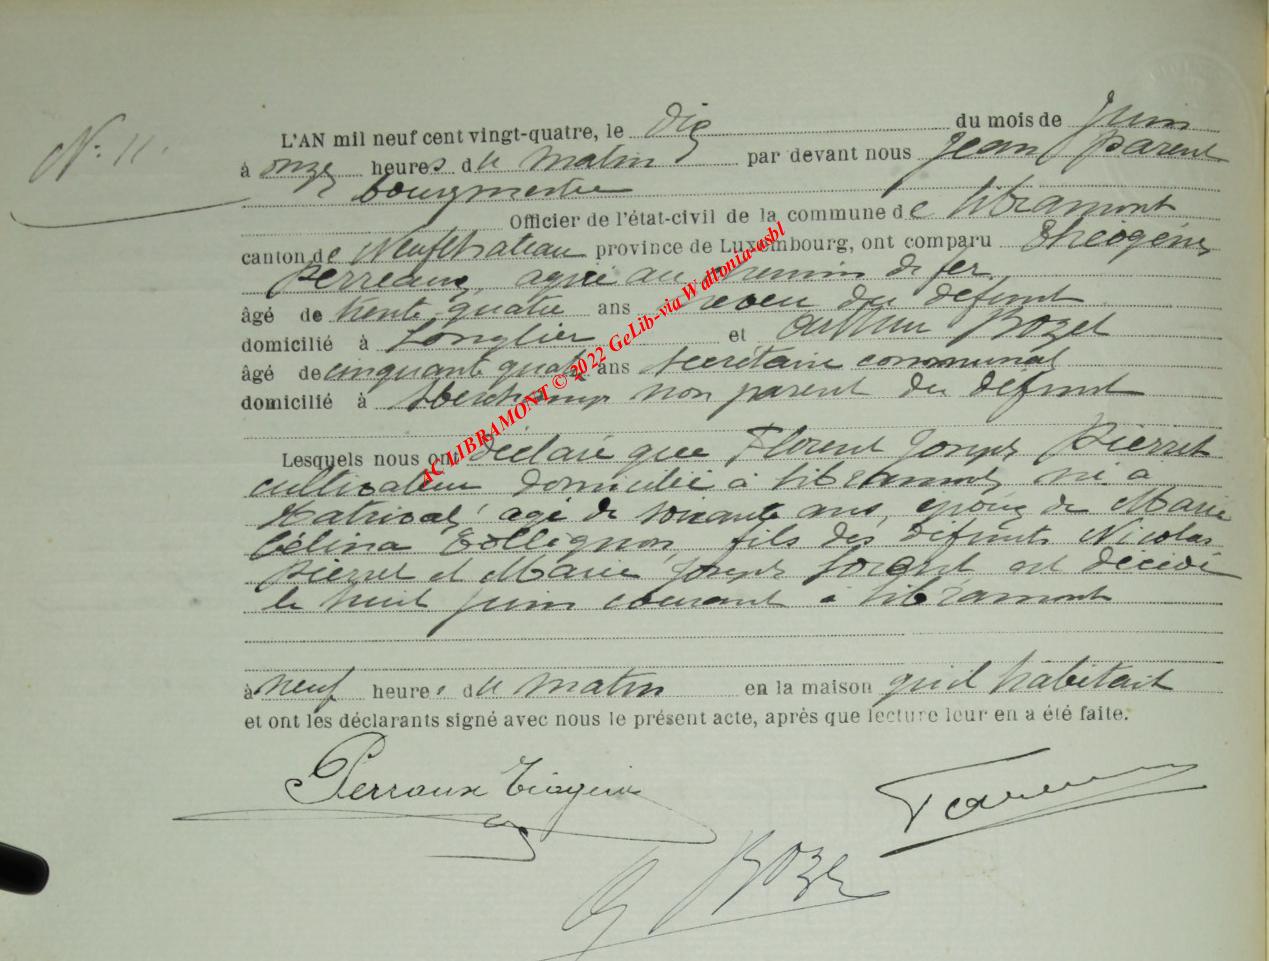 N° 11.
L'AN mil neuf cent vingt-quatre, le dix du mois de Juin
à onze heures du matin par devant nous Jean Parent
bourgmestre
Officier de l'état-civil de la commune de Libramont
canton de Neufchateau province de Luxembourg, ont comparu Théogène
Perreaux, agréé au chemin de fer,
âgé de trente quatre ans neveu du défunt
domicilié à Longlier et Arthur Bozet
âgé de cinquante quatre ans secrétaire communal
domicilié à non parent du défunt
Lesquels nous ont déclaré que Florent Joseph Pierret
cultivateur domicilié à Libramont né à
agé de soixante ans, époux de Marie
Célina Collignon, fils des défunts Nicolas
Pierret et Marie Joseph est décédé
le huit Juin courant à Libramont
à neuf heures du matin en la maison qu'il habitait
et ont les déclarants signé avec nous le présent acte, après que lecture leur en a été faite.
Perraux Théogène
Parent
A Bozet
AC LIBRAMONT © 2022 GeLib-via Wallonia-asbl